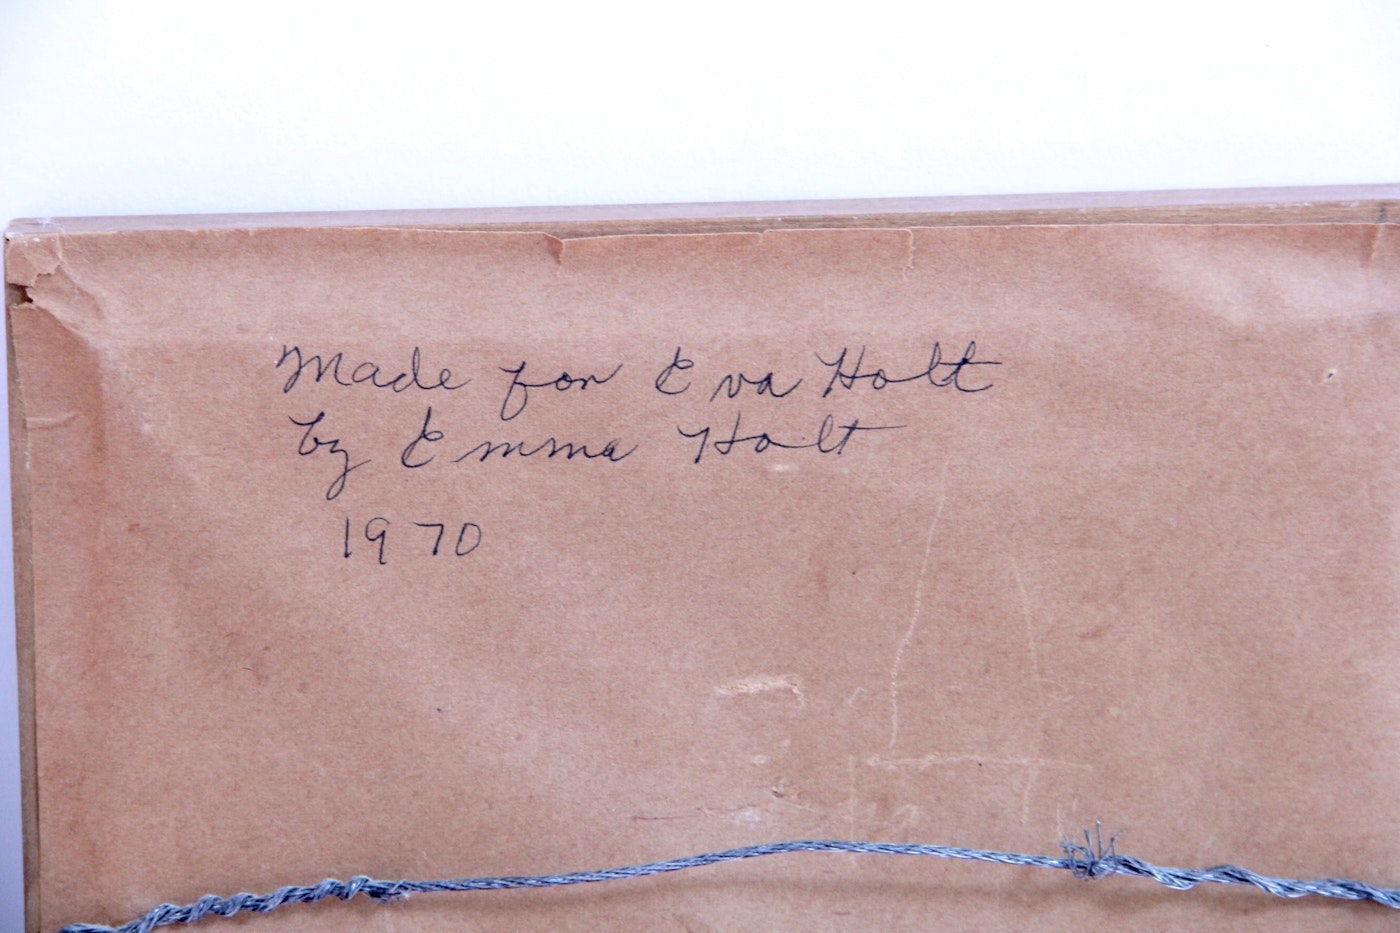 Made for Eva Holt
by Emma Holt
1970